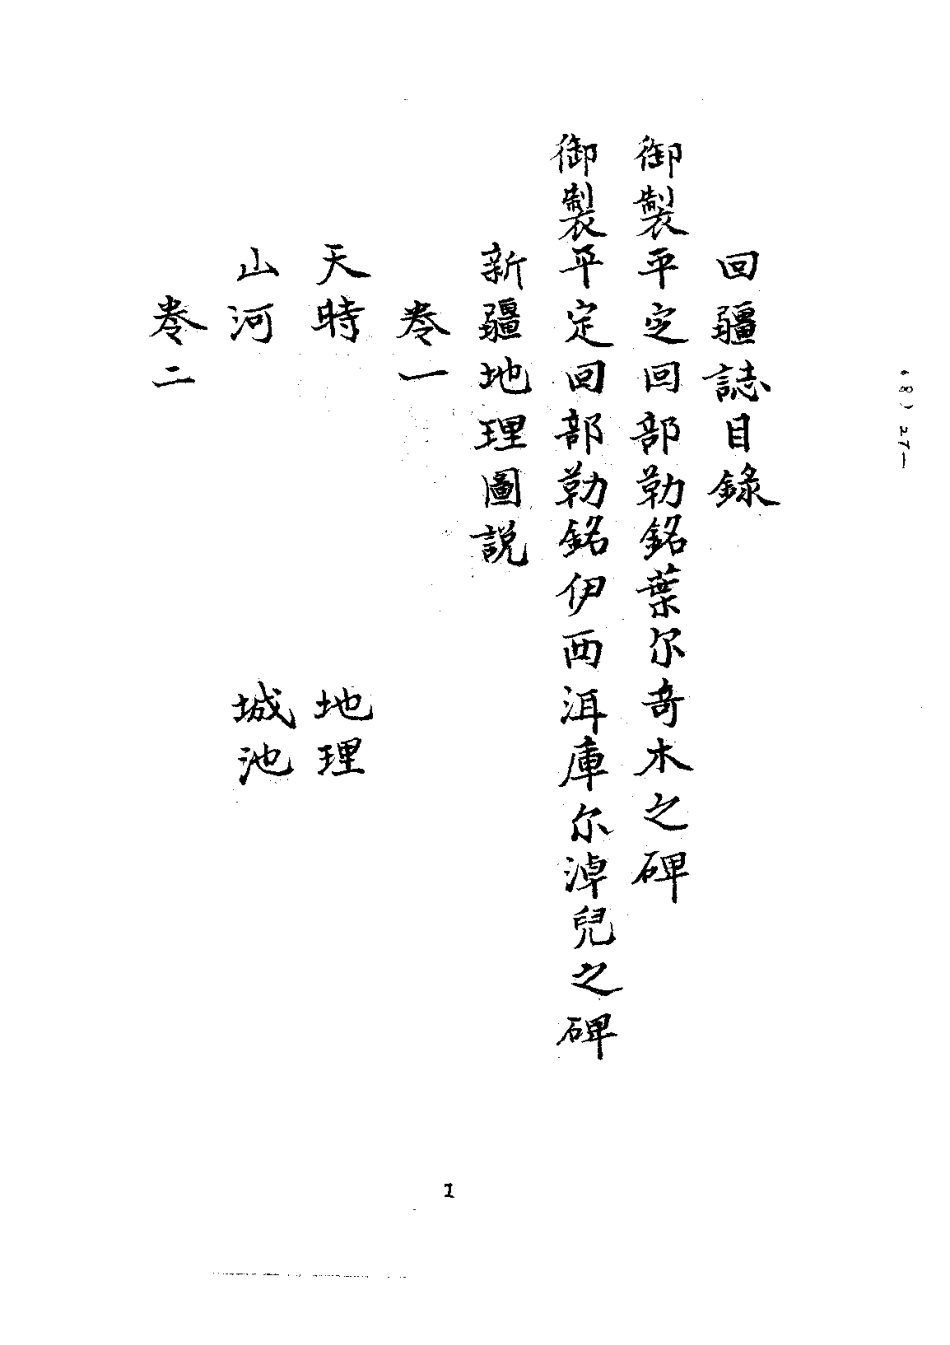 回疆誌目錄
御製平定回部勒銘葉尔奇木之碑
御製平定回部勒銘伊西洱庫尔淖兒之碑
新疆地理圖説
卷一
天時　地理
山河　城池
卷二
1